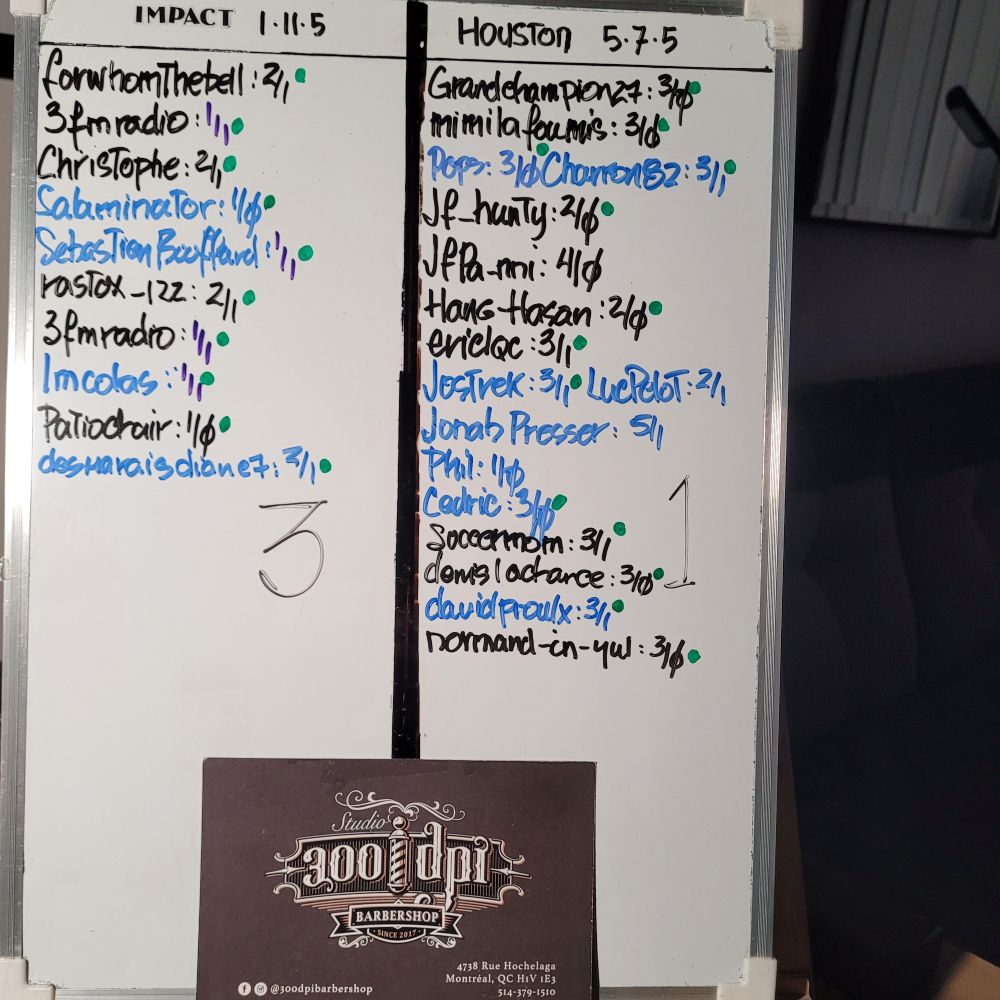 IMPACT 1·11·5
forwhomThebell: 2/1
3fmradio: 1/1
Christophe: 2/1
Salaminator: 1/0
Sebastien Bouffard: 1/1
rastox_122: 2/1
3fmradio: 1/1
lmcolas: 1/1
Patiochair: 1/0
desmaraisdiane7: 3/1
3
HOUSTON 5·7·5
Grandchampion27: 3/0
mimilafourmis: 3/0
Pops: 3/0 Charron82: 3/1
Jf_hunty: 2/0
JfPa-nni: 4/0
Hans-Hasan: 2/0
ericlqc: 3/1
Jostrek: 3/1 LucPelot: 2/1
Jonab Presser: 5/1
Phil: 1/0
Cedric: 3/0
Soccermom: 3/1
denislachance: 3/0
davidproulx: 3/1
normand-in-yul: 3/0
1
Studio
300 dpi
BARBERSHOP
SINCE 2017
4738 Rue Hochelaga
Montréal, QC H1V 1E3
514-379-1510
@300dpibarbershop